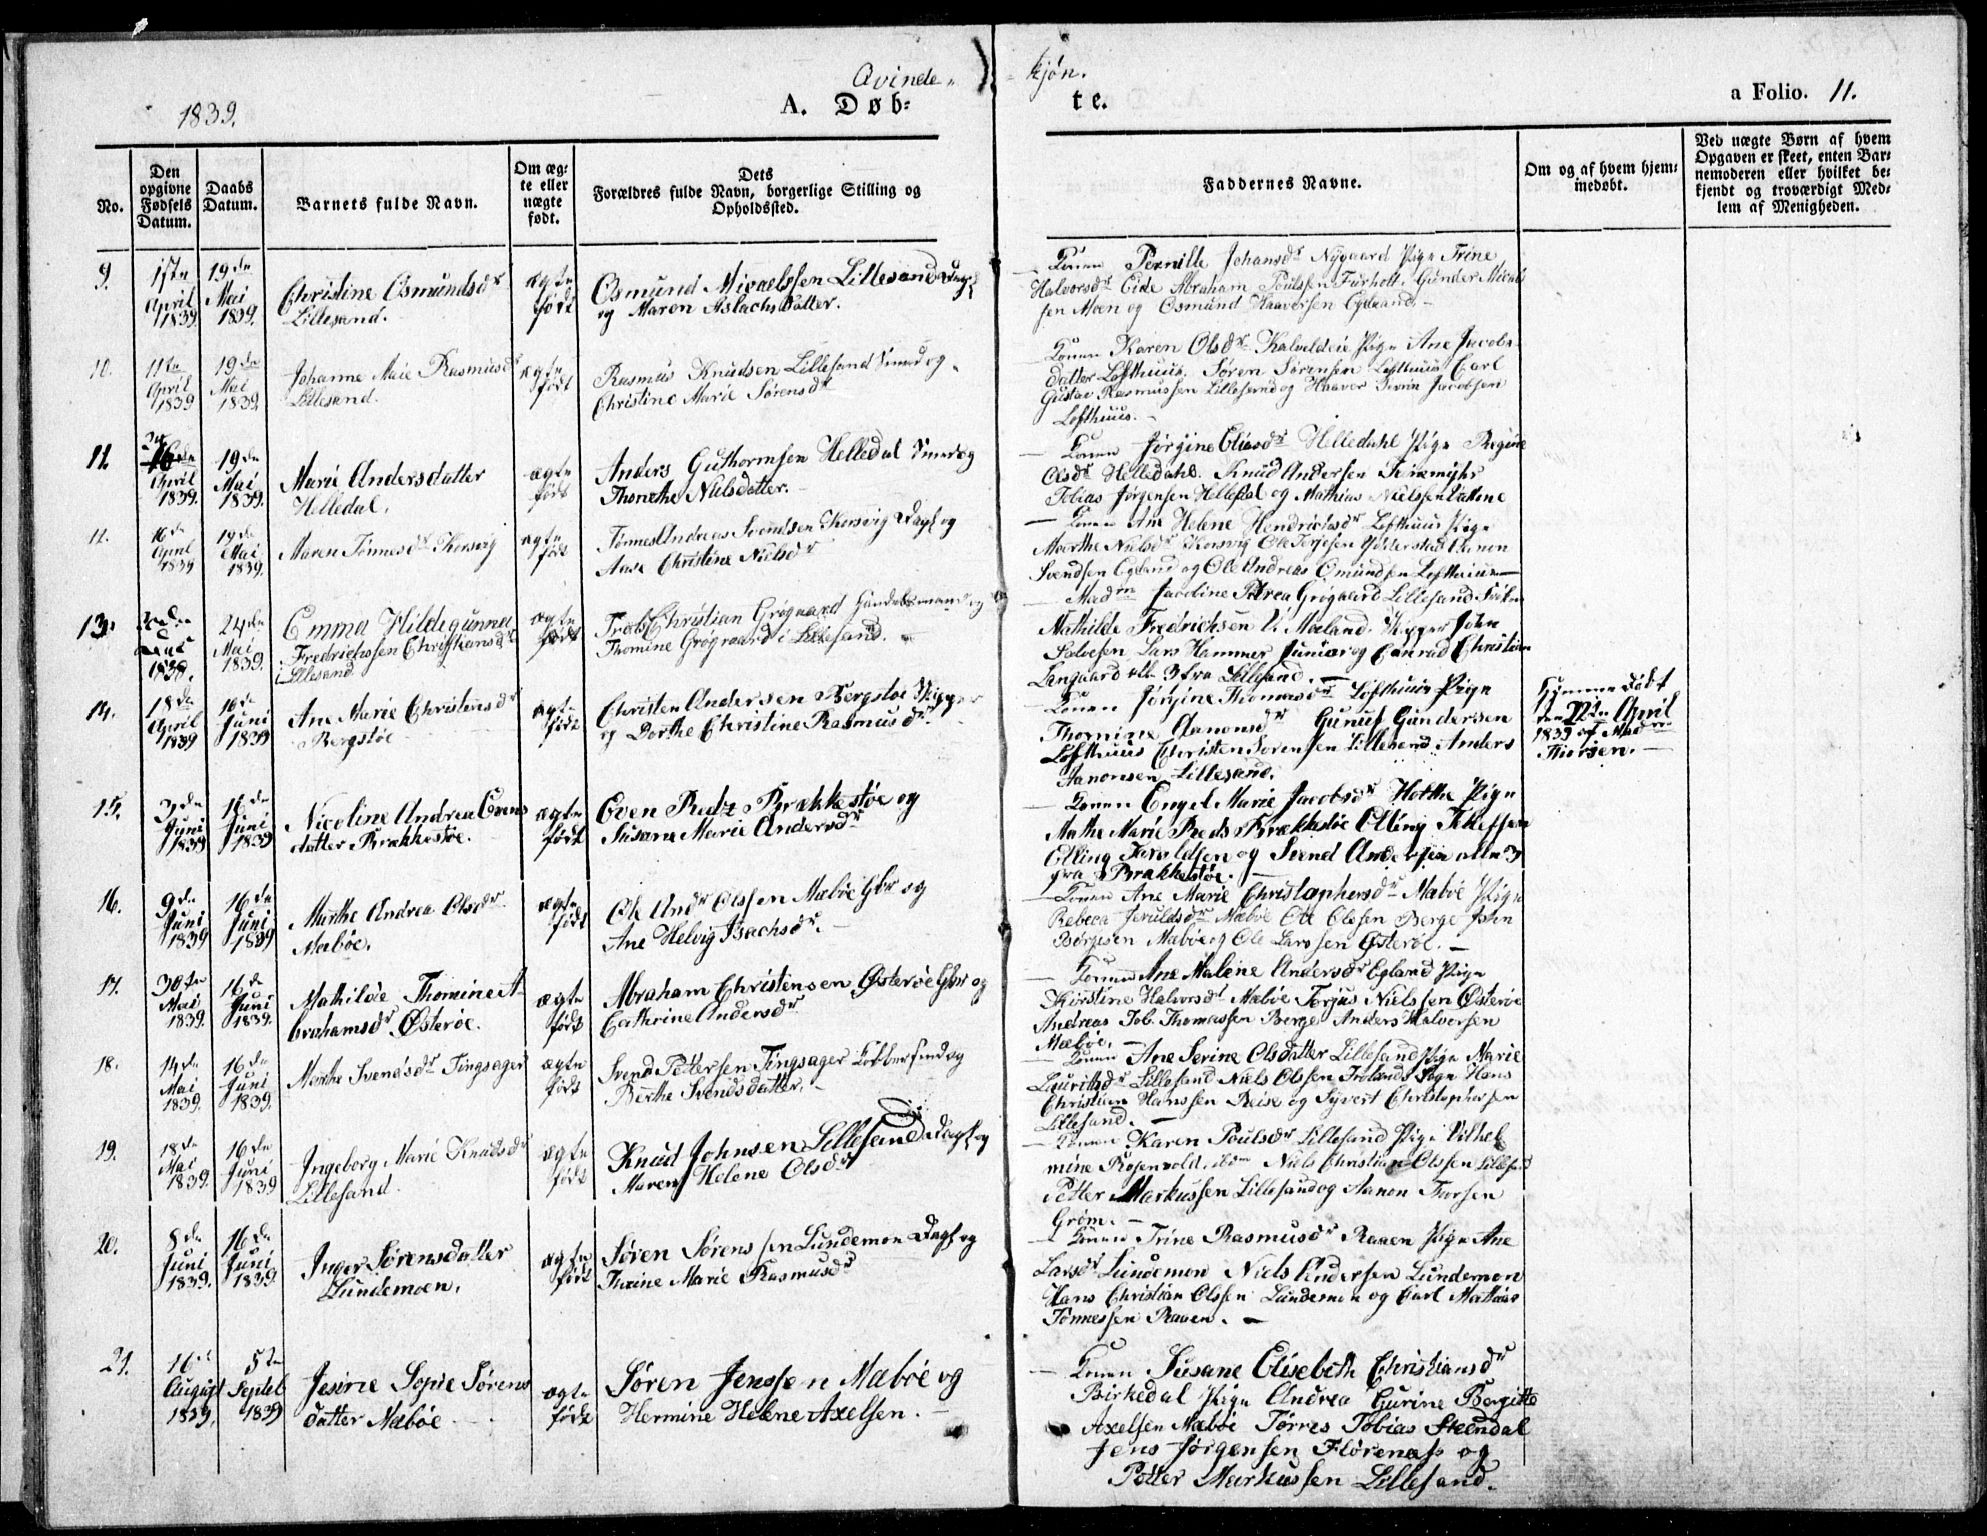 Qvinde-
kjøn.
1839.
A. Døb-
te.
a Folio. 11.
No.
Den opgivne Fødsels Datum.
Daabs Datum.
Barnets fulde Navn.
Om ægte eller uægte født.
Dets Forældres fulde Navn, borgerlige Stilling og Opholdssted.
Faddernes Navne.
Om og af hvem hjemmedøbt.
Ved uægte Børn af hvem Opgaven er skeet, enten Barnemoderen eller hvilket bekjendt og troværdigt Medlem af Menigheden.
9.
1ste April 1839
19de Mai 1839.
Christine Osmundsdr
Lillesand.
ægte født
Osmund Micaelssen Lillesand
og Maren Aslachsdatter.
Konen Pernille Johansdr Nygaard Pige Trine
Halvorsdr Eide Abraham Poulssen Furholt, Gunder Micael
sen Moen og Osmund Haavorsen Egeland. -
10.
11te April 1839
19de Mai 1839
Johanne Marie Rasmusdr
Lillesand.
ægte født
Rasmus Knudsen Lillesand Smed og
Christine Marie Sørensdr
Konen Karen Olsdr Pige Ane Jacobs
datter Lofthuus. Søren Sørensen Lofthuus Carl
Gustav Rasmussen Lillesand og Haavor Jacobsen
Lofthuus. -
11.
April 1839.
19de Mai 1839.
Marie Andersdatter
Helledal.
ægte født
Anders Guthormsen Helledal Smed og
Thonethe Nielsdatter. -
Konen Jørgine Eliasdr Helledahl Pige Regine
Olsdr Helledahl. Knud Andersen
Tobias Jørgensen Helledal og Mathias Nielssen
12.
16de April 1839
19de Mai 1839.
Maren Tønnesdr Korsvig
ægte født
Tønnes Andreas Svendsen Korsvig og
Aase Christine Nielsdr
Konen Ane Helene Hendrichsdr Lofthuus Pige
Marthe Nielsdr Korsvig Ole Terjesen
Svendsen Egeland og Ole Andreas Osmundsen Lofthuus
13.
1838.
24de Mai 1839.
Emma Hildegunna
Fredrichssen Christiansdr
i Lillesand
ægte født
Christian Grøgaard Handelsmand og
Thomine Grøgaard i Lillesand.
Madm Jacobine Petrea Grøgaard Lillesand
Mathilde Fredrichsen Mæland. Skipper John
Salvesen Lars Hammer Junior og Conrad Christian
Langaard alle 3 fra Lillesand. -
14.
18de April 1839
16de Juni 1839
Ane Marie Christensdr
Bergstøe
ægte født
Christen Andersen Bergstøe Skipper
og Dorthe Christine Rasmusdr
Konen Jørgine Thomasdr Lofthuus Pige
Thomine Aanonsdr Gunuf Gundersen
Lofthuus Christen Sørensen Lillesand Anders
Aanonsen Lillesand.
Hjemmedøbt
den 22de April
1839 af Madm
Thorsen. -
15.
3de Juni 1839
16de Juni 1839
Nicoline Andrea Evens
datter Brækkestøe.
ægte født
Even Peder Brækkestøe og
Susane Marie Andersdr
Konen Engel Marie Jacobsdr Holthe Pige
Mathe Marie Peds Brækkestøe Elling Tellefsen
Elling Jaroldsen og Svend Andersen alle 3
fra Brækkestøe. -
16.
9de Juni 1839
16de Juni 1839
Marthe Andrea Olsdr
Mæbøe.
ægte født
Ole Andr Olssen Mæbøe Gbr og
Ane Helvig Isachsdr. -
Konen Ane Marie Christophersdr Mæbøe Pige
Rebecca Jeruldsdr Mæbøe Ole Olssen Berge John
Børgesen Mæbøe og Ole Larssen Østerøe. -
17.
30te Mai 1839.
16de Juni 1839.
Mathilde Thomine A-
brahamsdr Østerøe.
ægte født
Abraham Christensen Østerøe Gbr og
Cathrine Andersdr
Konen Ane Malene Andersdr Egeland Pige
Kirstine Halvorsdr Mæbøe Terjus Nielssen Østerøe
Andreas Job. Thomassen Berge Anders Halversen
Mæbøe. -
18.
14de Mai 1839.
16de Juni 1839.
Marthe Svendsdr Tingsager
ægte født
Svend Pettersen Tingsager og
Berthe Svendsdatter.
Konen Ane Serine Olsdatter Lillesand Pige Marie
Lauritsdr Lillesand Niels Olssen Sogn Hans
Christian Hanssen Reise og Syvert Christophersen
Lillesand. -
19.
18de Mai 1839.
16de Juni 1839
Ingeborg Marie Knudsdr
Lillesand.
ægte født
Knud Johnsen Lillesand og
Maren Helene Olsdr
Konen Karen Poulsdr Lillesand Pige Vilhel
mine Rosenvold Niels Christian Olssen Lillesand
Petter Markussen Lillesand og Aanon Thorsen
Grøm. -
20.
8de Juni 1839.
16de Juni 1839.
Inger Sørensdatter
Lundemoen.
ægte født
Søren Sørenssen Lundemoen og
Thrine Marie Rasmusdr
Konen Trine Rasmusdr Raaen Pige Ane
Larsdr Lundemon Niels Andersen Lundemon
Hans Christian Olssen Lundemon og Carl Mathias
Tønnessen Raaen. -
21.
16de August 1839.
5te Septbr 1839
Jesine Sopie Sørens
datter Mæbøe
ægte født
Søren Jenssen Mæbøe og
Hermine Helene Axelsen. -
Konen Susane Elisebeth Christiansdr
Birkedal Pige Andrea Gurine Bergitte
Axelsen Mæbøe Tørres Tobias Steendal
Jens Jørgensen Florenæss og
Petter Markussen Lillesand.